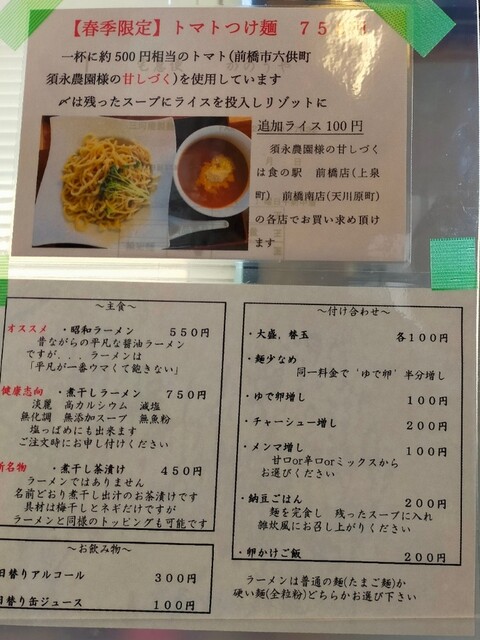 【春季限定】トマトつけ麺　75
一杯に約500円相当のトマト(前橋市六供町
須永農園様の甘しづく)を使用しています
〆は残ったスープにライスを投入しリゾットに
追加ライス100円
須永農園様の甘しづく
は食の駅　前橋店(上泉
町)　前橋南店(天川原町)
の各店でお買い求め頂け
ます
～主食～
オススメ　・昭和ラーメン　550円
昔ながらの平凡な醤油ラーメン
ですが．．．ラーメンは
「平凡が一番ウマくて飽きない」
健康志向　・煮干しラーメン　750円
淡麗　高カルシウム　減塩
無化調　無添加スープ　無魚粉
塩っぱめにも出来ます
ご注文時にお申し付けください
新名物　・煮干し茶漬け　450円
ラーメンではありません
名前どおり煮干し出汁のお茶漬けです
具材は梅干しとネギだけですが
ラーメンと同様のトッピングも可能です
～お飲み物～
日替りアルコール　300円
日替り缶ジュース　100円
～付け合わせ～
・大盛、替玉　各100円
・麺少なめ
同一料金で'ゆで卵'半分増し
・ゆで卵増し　100円
・チャーシュー増し　200円
・メンマ増し　100円
甘口or辛口orミックスから
お選びください
・納豆ごはん　200円
麺を完食し　残ったスープに入れ
雑炊風にお召し上がりください
・卵かけご飯　200円
ラーメンは普通の麺(たまご麺)か
硬い麺(全粒粉)どちらかお選び下さい